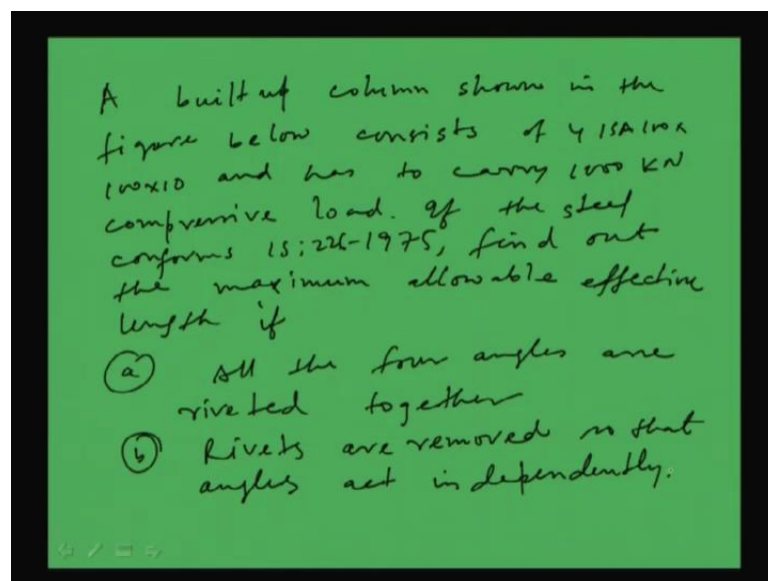 A built up column shown in the
figure below consists of 4 ISA 100x
100x10 and has to carry 1000 KN
compressive load. If the steel
conforms IS:226-1975, find out
the maximum allowable effective
length if
(a) All the four angles are
riveted together
(b) Rivets are removed so that
angles act independently.